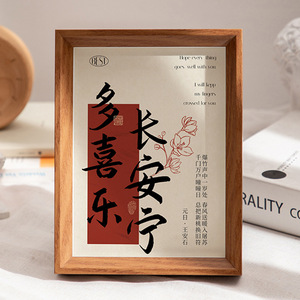 BEST
Hope every thing
goes well with you
I will kepp
my fingers
crossed for you
多喜乐
长安宁
爆竹声中一岁除 春风送暖入屠苏
千门万户曈曈日 总把新桃换旧符
元日·王安石